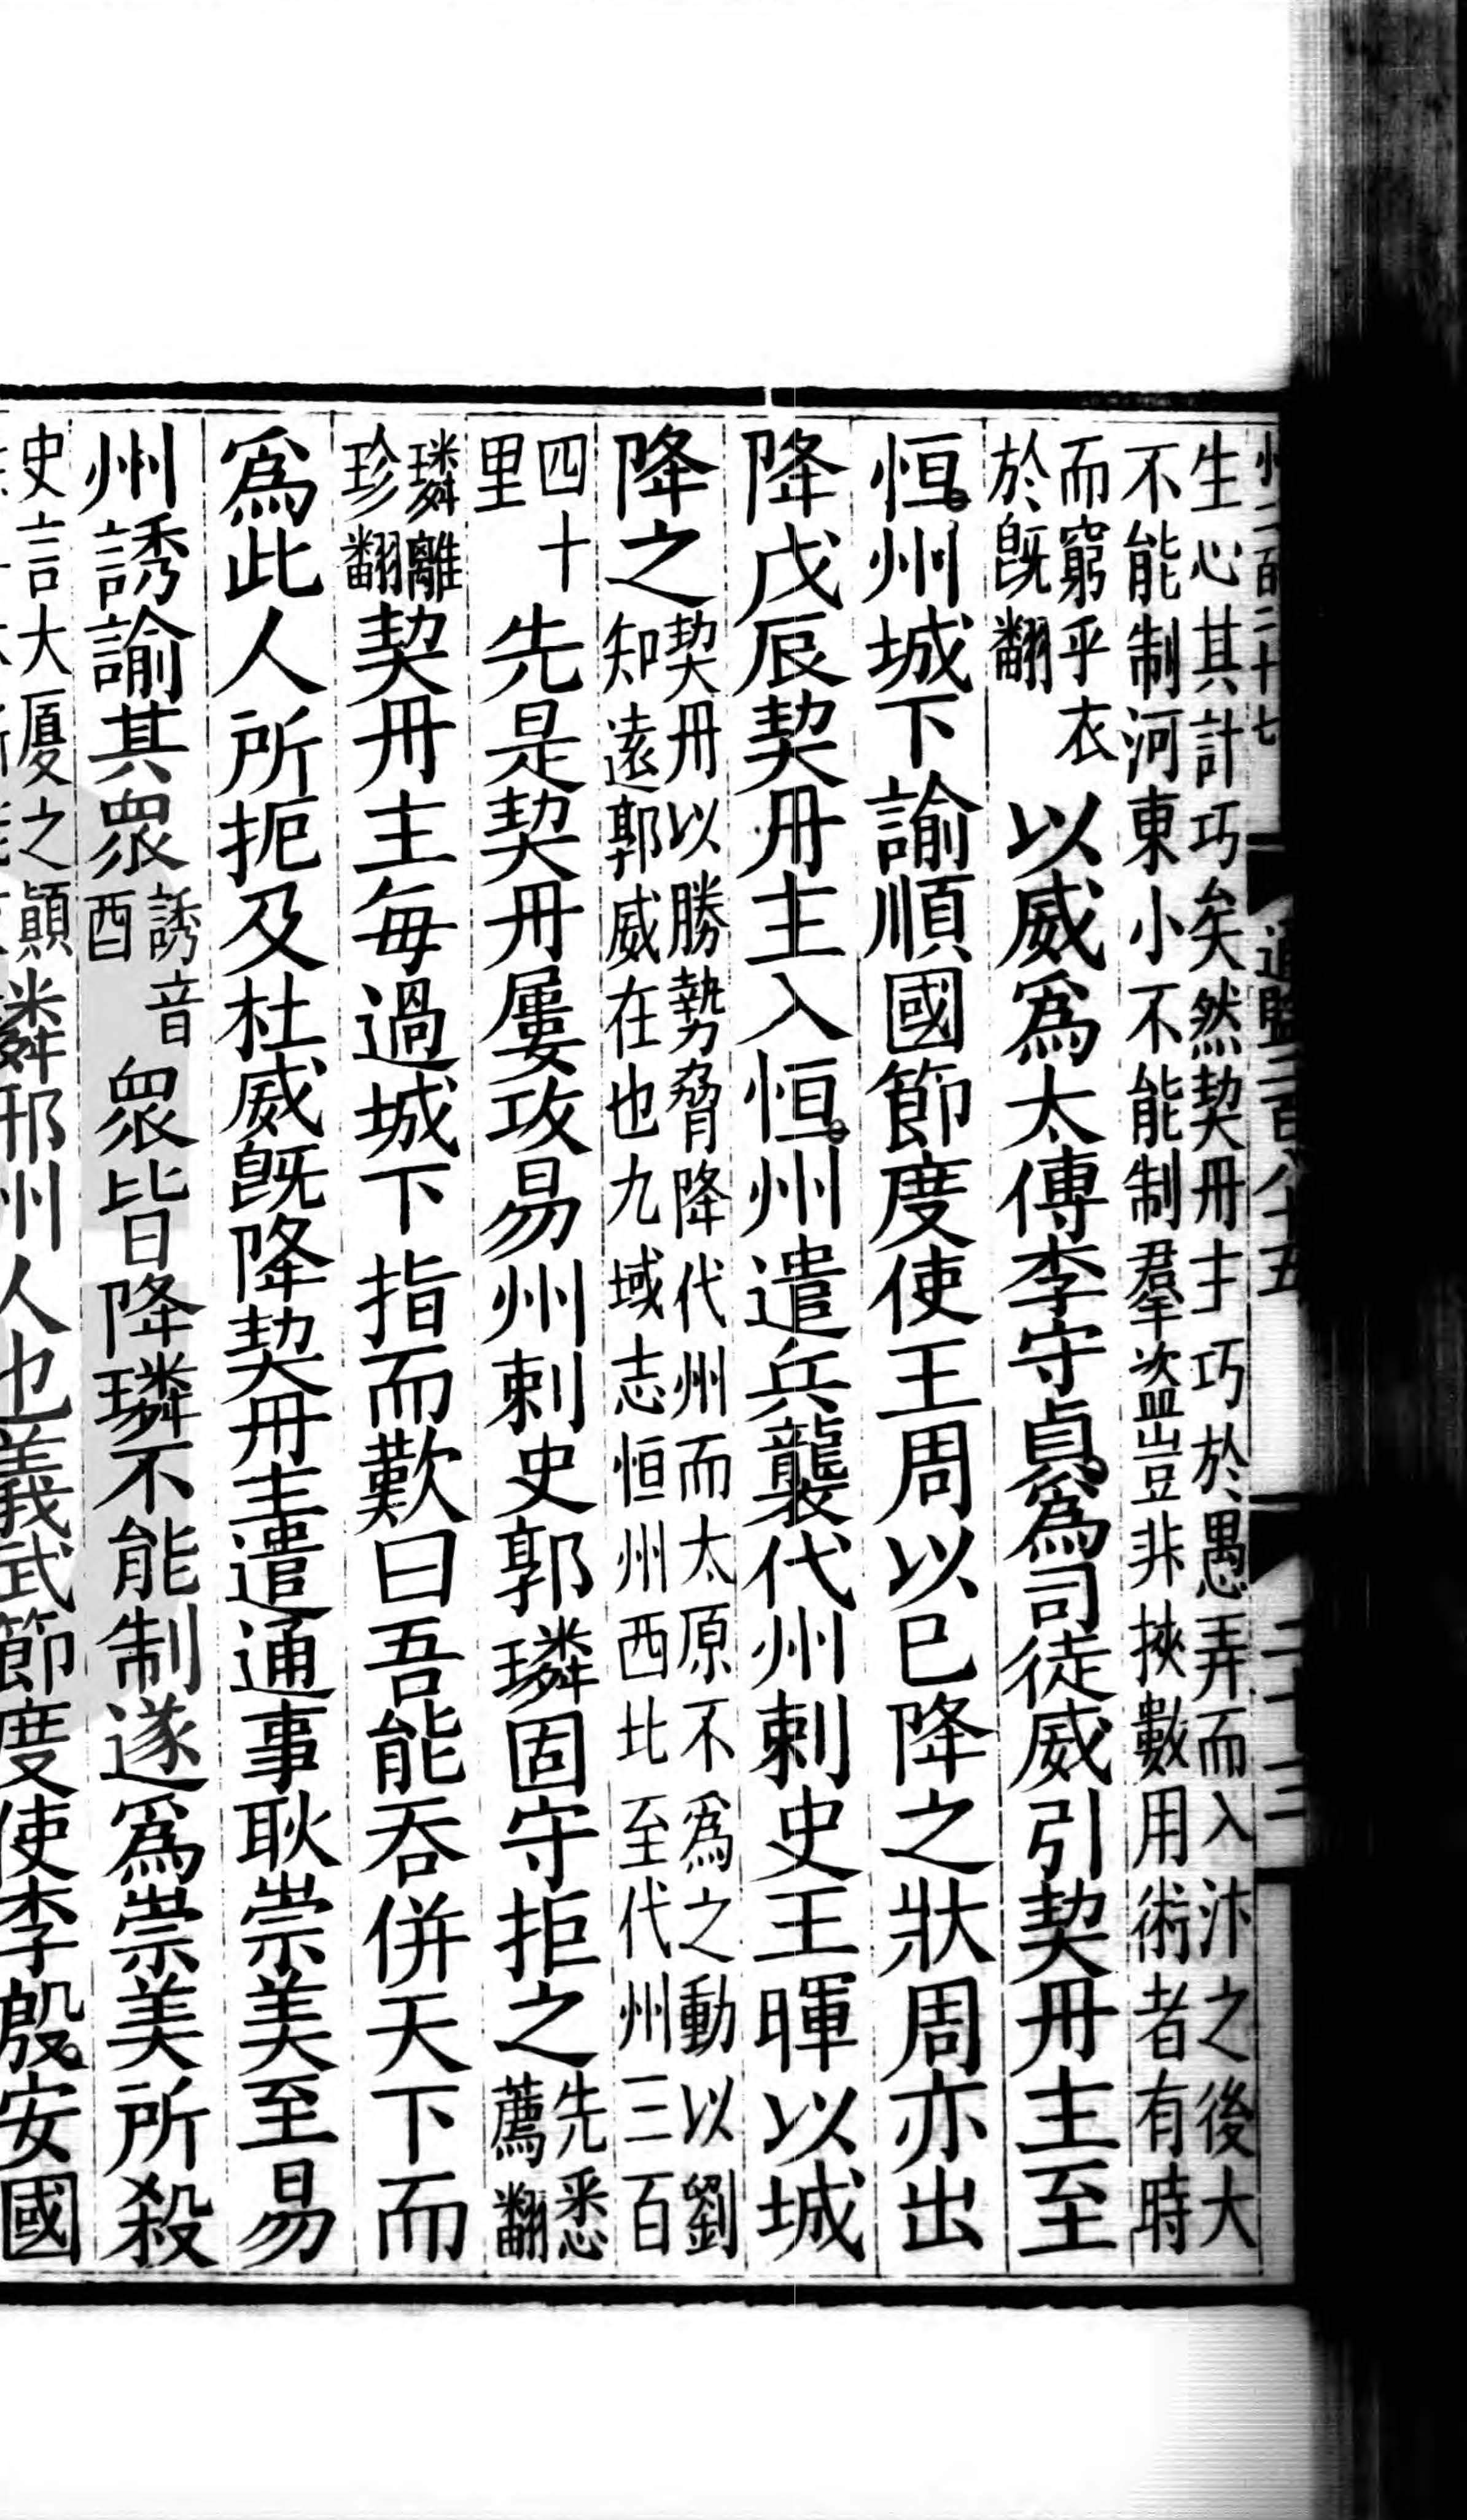 州二百二十七
通鑑二百八十五 二十三
生心其計巧矣然契丹主巧於愚弄而入汴之後大
不能制河東小不能制羣盜豈非挾數用術者有時
而窮乎衣
於旣翻
以威爲太傅李守貞爲司徒威引契丹主至
恒州城下諭順國節度使王周以已降之狀周亦出
降戊辰契丹主入恒州遣兵襲代州剌史王暉以城
降之
契丹以勝勢脅降代州而太原不爲之動以劉
知遠郭威在也九域志恒州西北至代州三百
四十
里
先是契丹屢攻易州剌史郭璘固守拒之
先悉
薦翻
璘離
珍翻
契丹主每過城下指而歎曰吾能吞併天下而
爲此人所扼及杜威旣降契丹主遣通事耿崇美至易
州誘諭其衆
誘音
酉
衆皆降璘不能制遂爲崇美所殺
史言大厦之顚
璘邢州人也義武節度使李殷安國